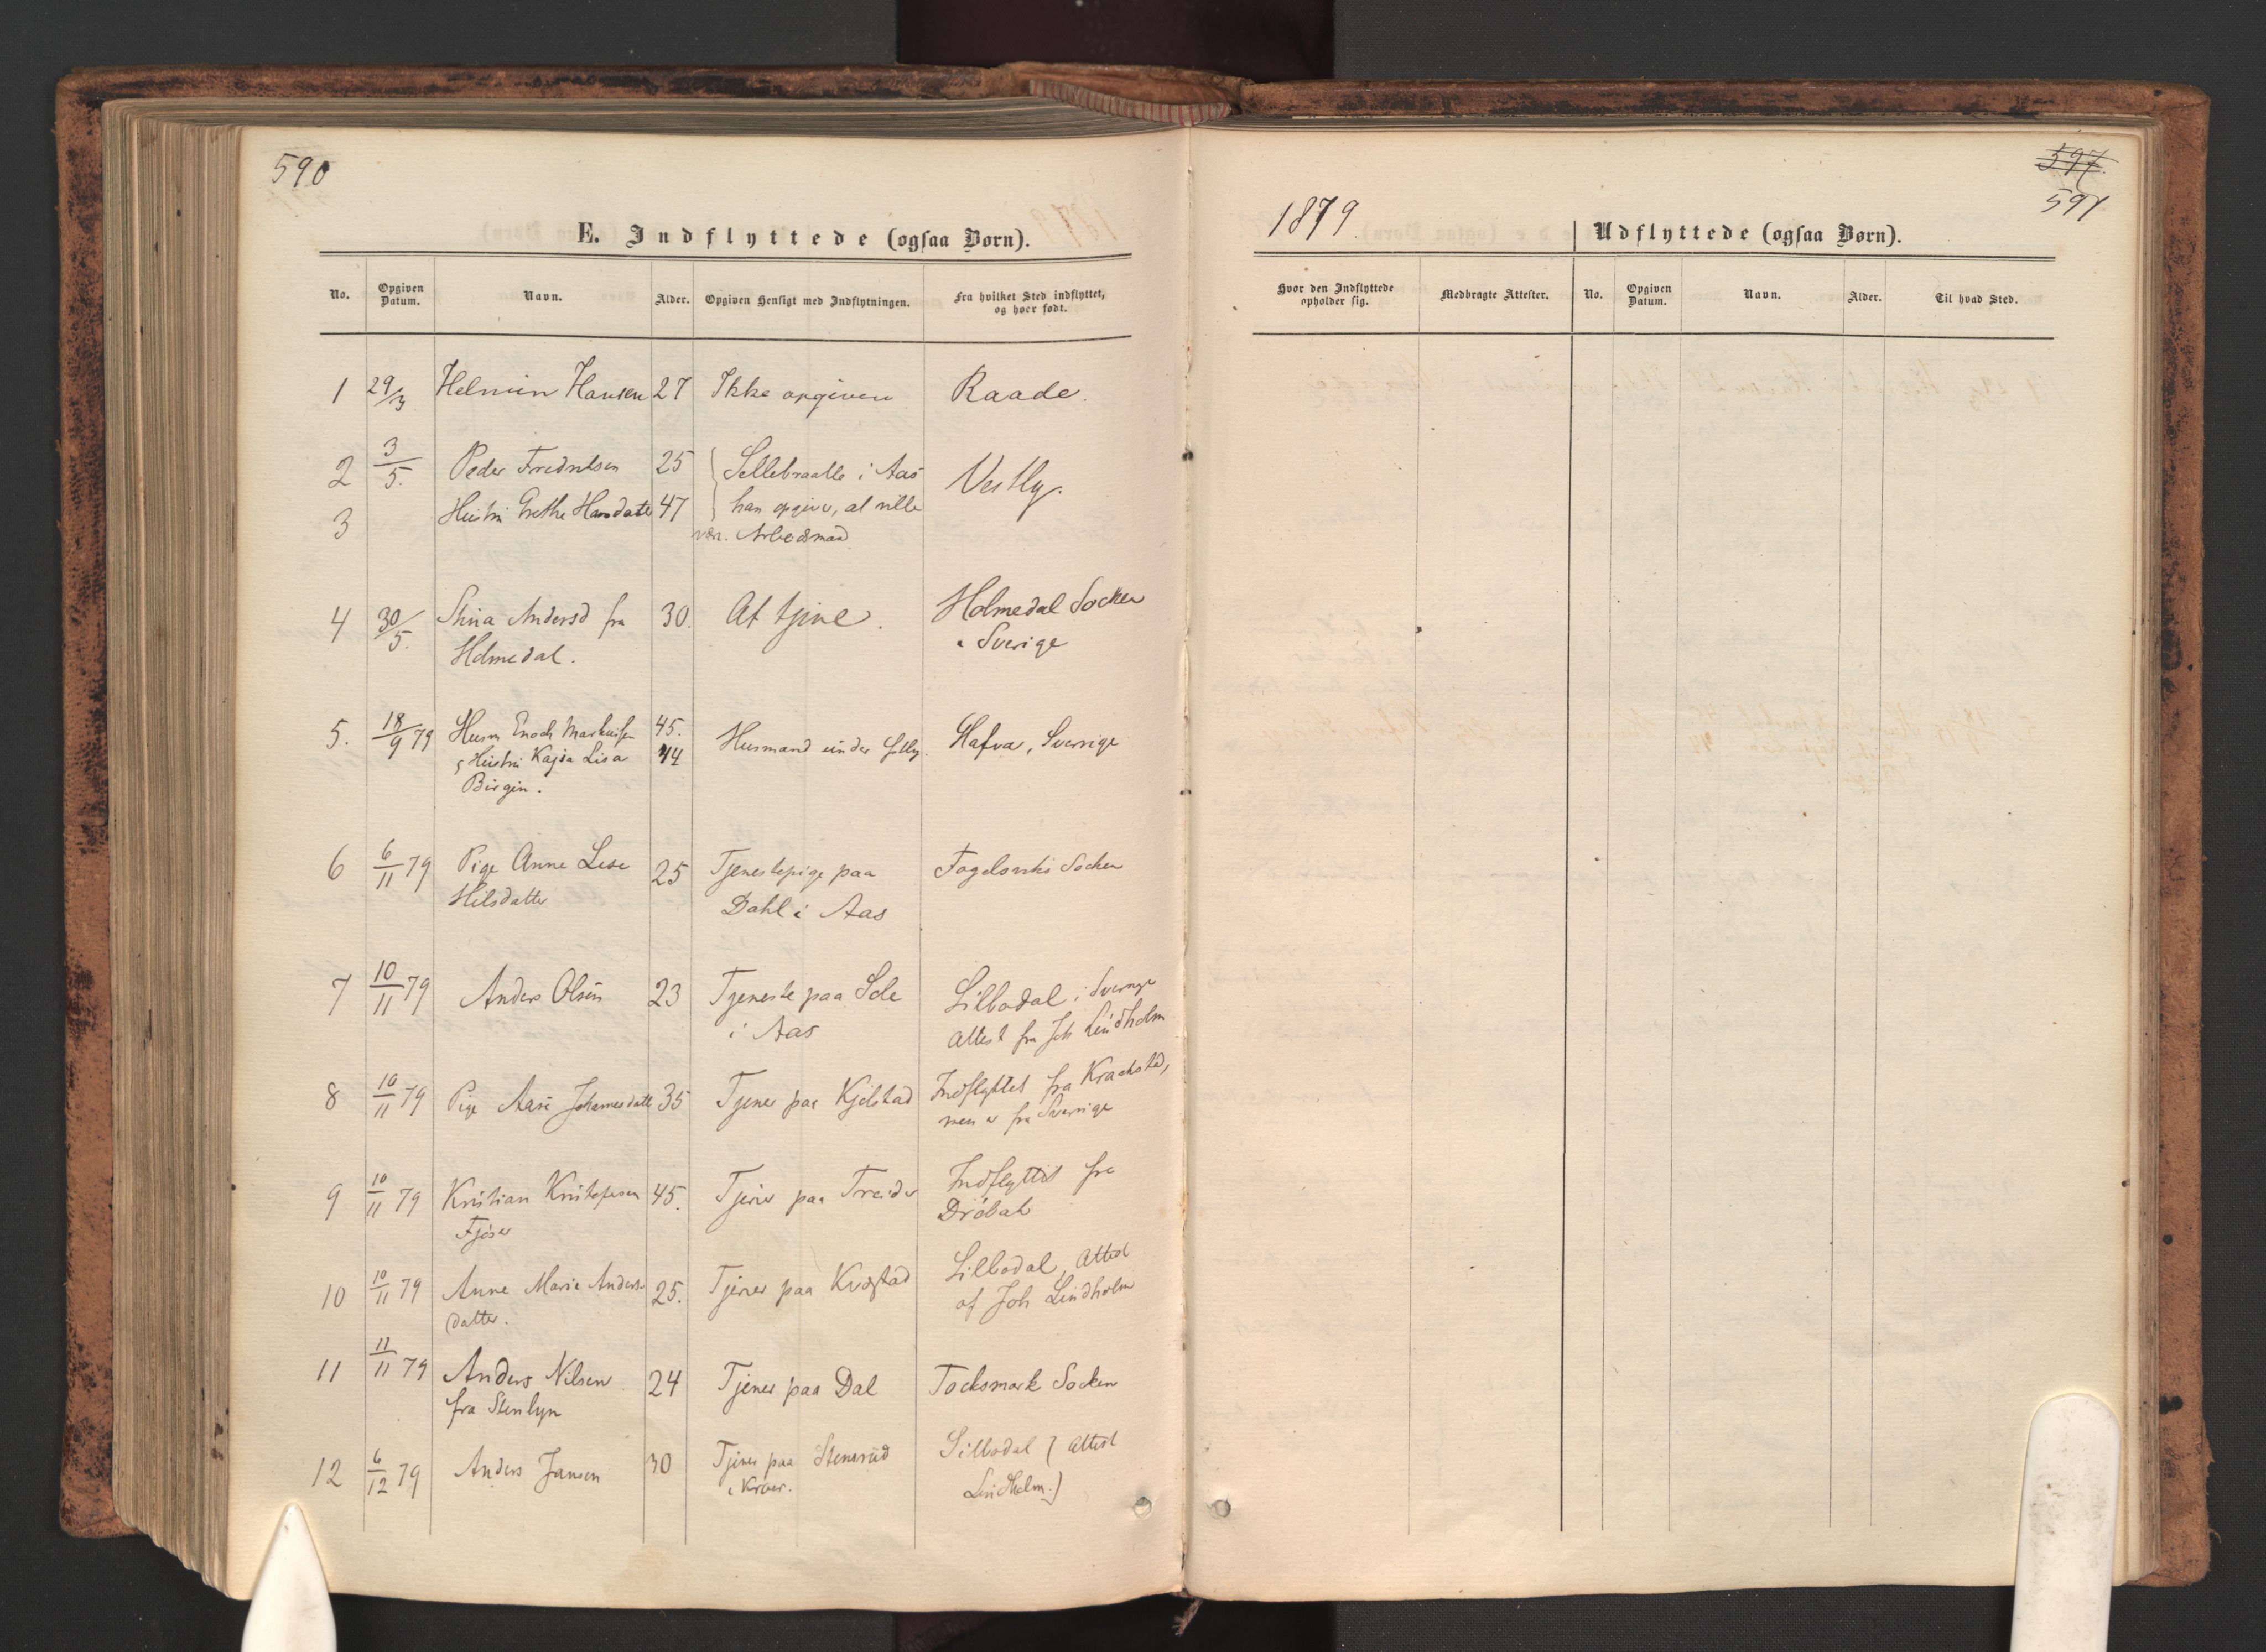 590
E. Indflyttede (ogsaa Børn).
No. Opgiven Datum. Navn. Alder. Opgiven Hensigt med Indflytningen. Fra hvilket Sted indflyttet, og hvor født.
1 29/3 Helmin Hansen 27 Ikke opgiven Raade.
2 3/5. Peder Fredriksen 25 Sellebraatte i Aas Vestby.
3 Hustru Grethe Hansdatt 47 han opgiver, at ville
vær. Arbeidsmand
4 30/5. Stina Andersd fra 30. At tjene. Holmedal Socken
Holmedal. i Sverige
5. 18/9 79 Husm Enoch Markusen 45. Husmand under Hafva, Sverrige
Hustru Kajsa Lisa 44
Birgin.
6 6/11 79 Pige Anne Lise 25 Tjenestepige paa Fogelsviks Socken
Nilsdatter Dahl i Aas
7 10/11 79 Anders Olsen 23 Tjeneste paa Sole Silbodal i Sverrige
i Aas Attest fra Joh Lindholm
8 10/11 79 Pige Johannesdatt 35 Tjener paa Kjølstad Indflyttet fra Kraakstad,
men er fra Sverrige
9 10/11 79 Kristian Kristofersen 45. Tjener paa Treider Indflyttet fra
Fjøser Drøbak
10 10/11 79 Anne Marie Anders- 25. Tjener paa Kvestad Silbodal, Attest
datter. af Joh Lindholm
11 11/11 79 Anders Nilsen 24 Tjener paa Dal Tocksmark Socken
fra Stenbyn
12 6/12 79 Anders Jansen 30 Tjener paa Stensrud Silbodal (Attest
i Kroer. Lindholm.)
597.
591
1879.
Udflyttede (ogsaa Børn).
Hvor den Indflyttede opholder sig. Medbragte Attester. No. Opgiven Datum. Navn. Alder. Til hvad Sted.